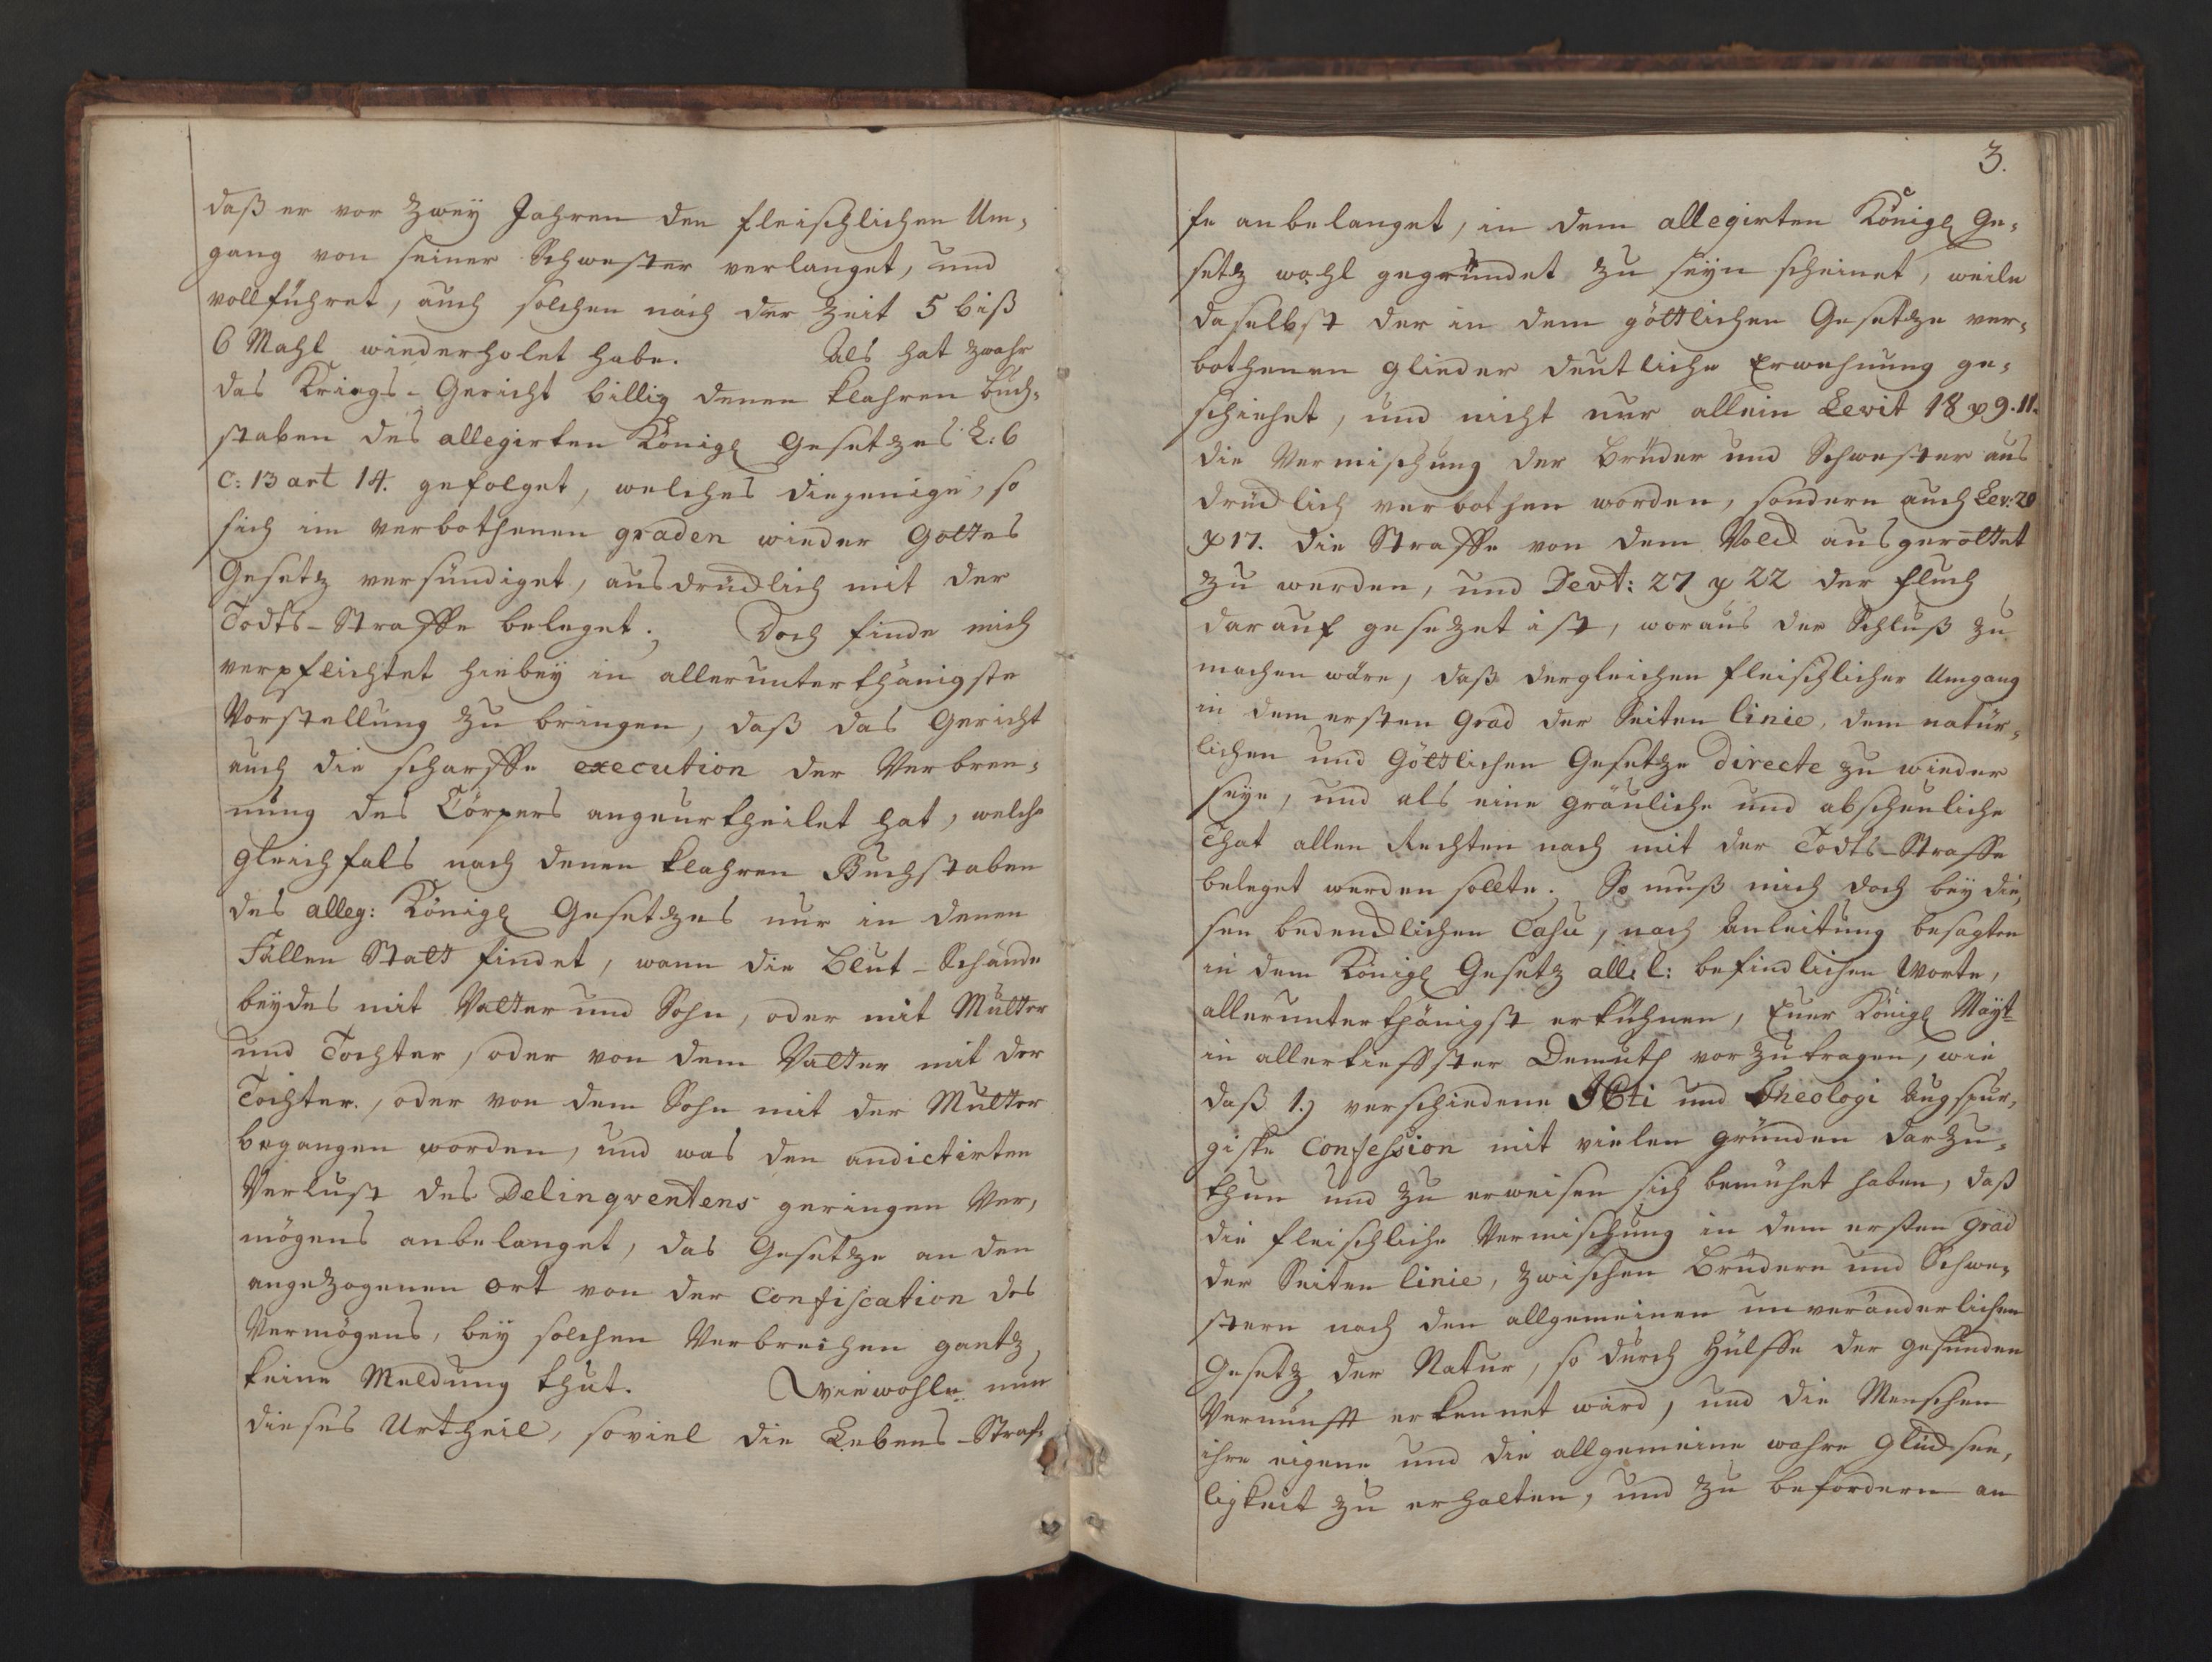 daß er vor zwey Jahren den fleischlichen Um-
gang von seiner Schwester verlanget, und
vollführet, auch solchen nach der Zeit 5 biß
6 Mahl wiederholet habe. Als hat zwahr
das Kriegs-Gericht billig denen klahren Buch-
staben des allegirten Königl Gesetzes L: 6
C: 13 art 14. gefolget, welches diejenige, so
sich im verbothenen graden wieder Gottes
Gesetz versündiget, ausdrücklich mit der
Todts-Straffe beleget. Doch finde mich
verpflichtet hiebey in allerunterthänigste
Vorstellung zu bringen, daß das Gericht
auch die scharffe execution der Verbren-
nung des Cörpers angeurtheilet hat, welche
gleichfals nach denen klahren Buchstaben
des alleg: Königl Gesetzes nur in denen
Fällen Statt findet, wann die Blut-Schande
beydes mit Vatter und Sohn, oder mit Mutter
und Tochter, oder von dem Vatter mit der
Tochter, oder von dem Sohn mit der Mutter
begangen worden, und was den andictirten
Verlust des Delinqventens geringen Ver-
mögens anbelanget, das Gesetze an den
angezogenen Ort von der Confiscation des
Vermögens, bey solchen Verbrechen gantz
keine Meldung thut. Wiewohle nun
dieses Urtheil, soviel die Lebens-Straf-
3.
fe anbelanget, in dem allegirten Königl Ge-
setz wohl gegründet zu seyn scheinet, weile
daselbst der in dem göttlichen Gesetze ver-
bothenen glieder deutliche Erwehnung ge-
schiehet, und nicht nur allein Levit 18 ℣ 9. 11.
die Vermischung der Brüder und Schwester aus
drücklich verbothen worden, sondern auch Lev: 20
℣ 17. die Straffe von dem Volck ausgerottet
zu werden, und Devt: 27 ℣ 22 der Fluch
darauf gesezet ist, woraus der Schluß zu
machen wäre, daß dergleichen fleischlicher Umgang
in dem ersten Grad der Seiten linie, dem natür-
lichen und Göttlichen Gesetze directe zu wieder
seye, und als eine gräuliche und abscheuliche
That allen Rechten nach mit der Todts-Straffe
beleget werden sollte. So muß mich doch bey die-
sen bedencklichen Casu, nach Anleitung besagten
in dem Königl Gesetz all: l: befindlichen Worte,
allerunterthänigst erkühnen, Euer Königl Mayt
in allertieffster Demuth vorzutragen, wie
daß 1.) verschiedene JCti und Theologi Augspur-
giske Confession mit vielen gründen darzu-
thun und zu erweisen sich bemühet haben, daß
die fleischliche Vermischung in dem ersten Grad
der Seiten linie, zwischen Brüdern und Schwe-
stern nach den allgemeinen unveränderlichen
Gesetz der Natur, so durch Hülffe der gesunden
Vernunfft erkennet wird, und die Menschen
ihre eigene und die allgemeine wahre Glücksee-
ligkeit zu erhalten, und zu befordern an